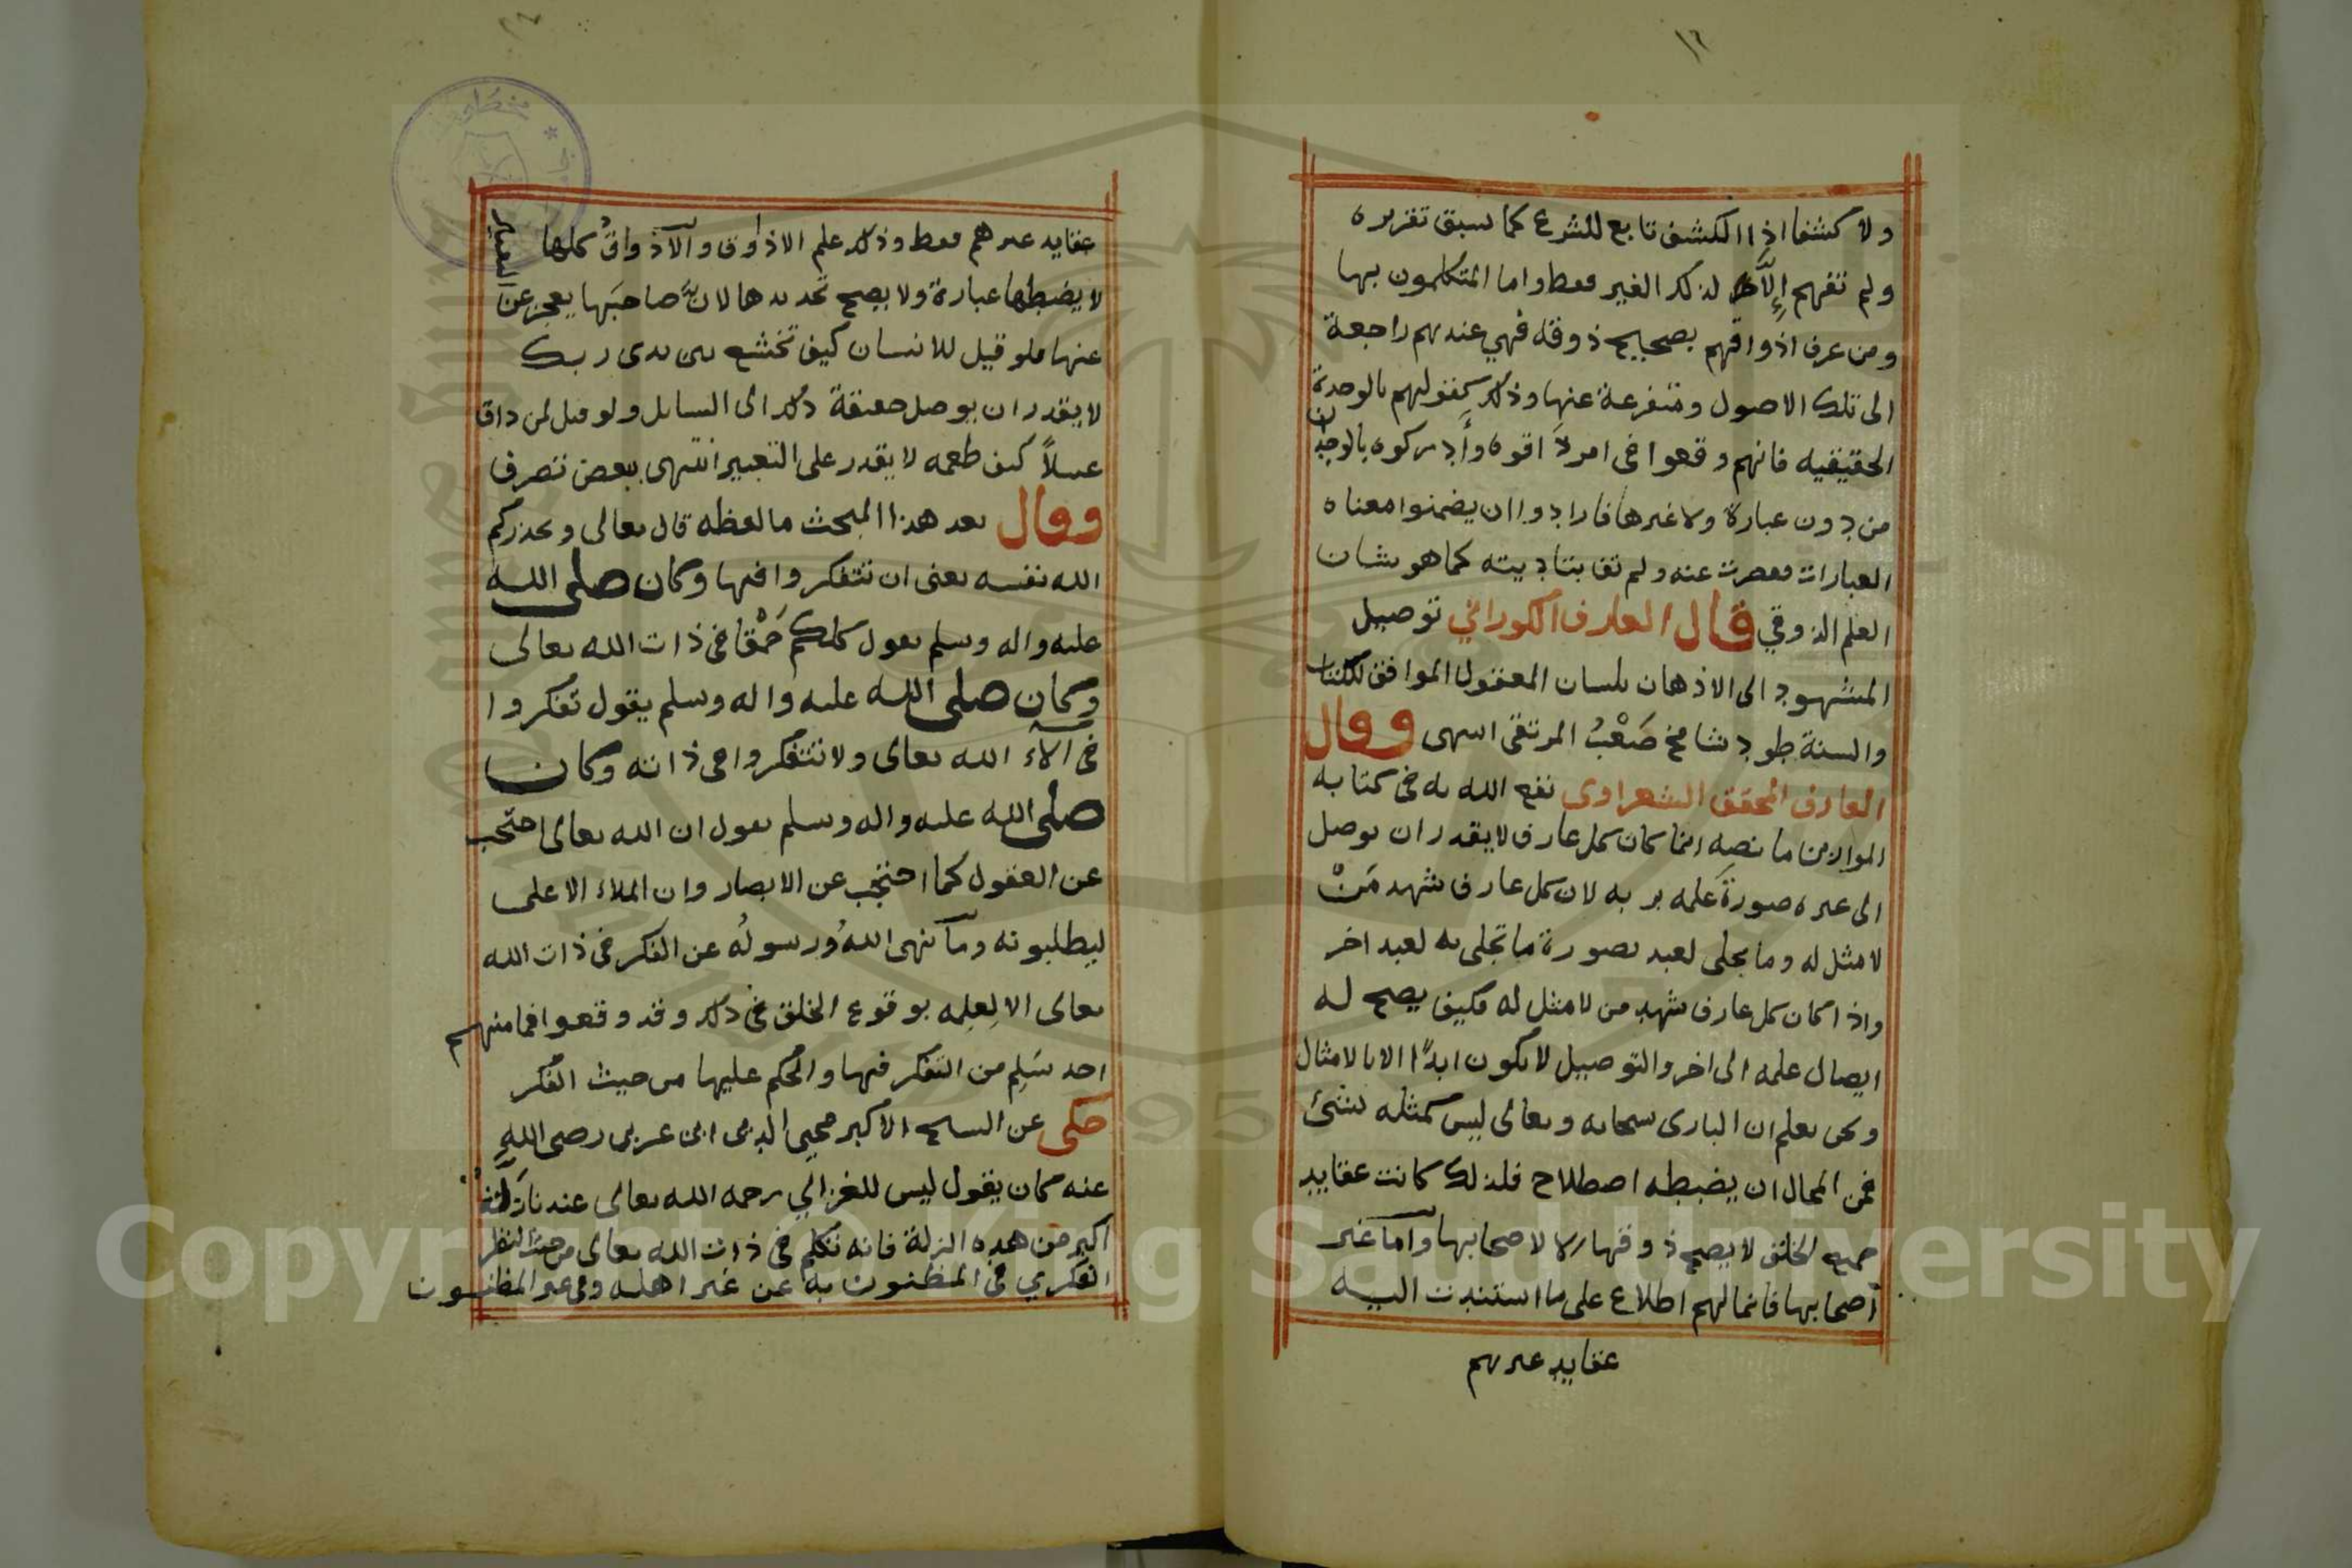 ولا كشفا اذ الكشف تابع للشرع كما سبق تقريره
ولم تفهم إلا لذلك الغير فقط واما المتكلمون بها
ومن عرف اذواقهم بصحيح ذوقه فهي عندهم راجعة
الى تلك الاصول ومتفرعة عنها وذلك كقولهم بالوحدة
الحقيقيه فانهم وقعوا في امر ذاقوه وأدركوه بالوجدان
من دون عبارة ولا غيرها فارادوا ان يضمنوا معناه
العبارات فقصرت عنه ولم تف بتاديته كما هو شان
العلم الذوقي قال العارف الكوراني توصيل
المشهود الى الاذهان بلسان المعقول الموافق للكتاب
والسنة طود شامخ صَعْبُ المرتقى انتهى وقال
العارف المحقق الشعراوى نفع الله به في كتابه
الموازين ما نصه انما كان كل عارف لا يقدر ان يوصل
الى غيره صورة علمه بربه لان كل عارف شهد مَنْ
لا مثل له وما تجلى لعبد بصورة ما تجلى به لعبد اخر
واذا كان كل عارف شهد من لا مثل له فكيف يصح له
ايصال علمه الى اخر والتوصيل لا يكون ابدًا الا بالامثال
ونحن نعلم ان البارى سبحانه وتعالى ليس كمثله شئ
فمن المحال ان يضبطه اصطلاح فلذلك كانت عقايد
جميع الخلق لا يصح ذوقها الا لاصحابها وأما غير
أصحابها فانما لهم اطلاع على ما استندت اليه
عقايد غيرهم
عقايد غيرهم فقط وذلك علم الاذواق والاذواق كلها
لا يضبطها عبارة ولا يصح تحديدها لان صاحبها يعجز عن التعبير
عنها فلو قيل للانسان كيف تخشع بين يدى ربك
لا يقدر ان يوصل حقيقة ذلك الى السايل ولو قيل لمن ذاق
عسلاً كيف طعمه لا يقدر على التعبير انتهى ببعض تصرف
وقال بعد هذا المبحث ما لفظه قال تعالى ويحذركم
الله نفسه يعنى ان تتفكروا فيها وكان صلى الله
عليه واله وسلم يقول كلكم حَمْقا في ذات الله تعالى
وكان صلى الله عليه واله وسلم يقول تفكروا
في آلآء الله تعالى ولا تتفكروا في ذاته وكان
صلى الله عليه واله وسلم يقول ان الله تعالى احتجب
عن العقول كما احتجب عن الابصار وان الملاء الاعلى
ليطلبونه وما نهى اللهُ ورسولُه عن الفكر في ذات الله
تعالى الا لِعلِمه بوقوع الخلق في ذلك وقد وقعوا فما منهم
احد سَلِم من التفكر فيها والحكم عليها من حيث الفكر
حكى عن الشيخ الاكبر محيى الدين ابن عربى رضى الله
عنه كان يقول ليس للغزالي رحمه الله تعالى عندنا زلة
اكبر من هذه الزلة فانه تكلم في ذات الله تعالى من حيث النظر
الفكري في المظنون به عن غير اهله وفى غير المظنون